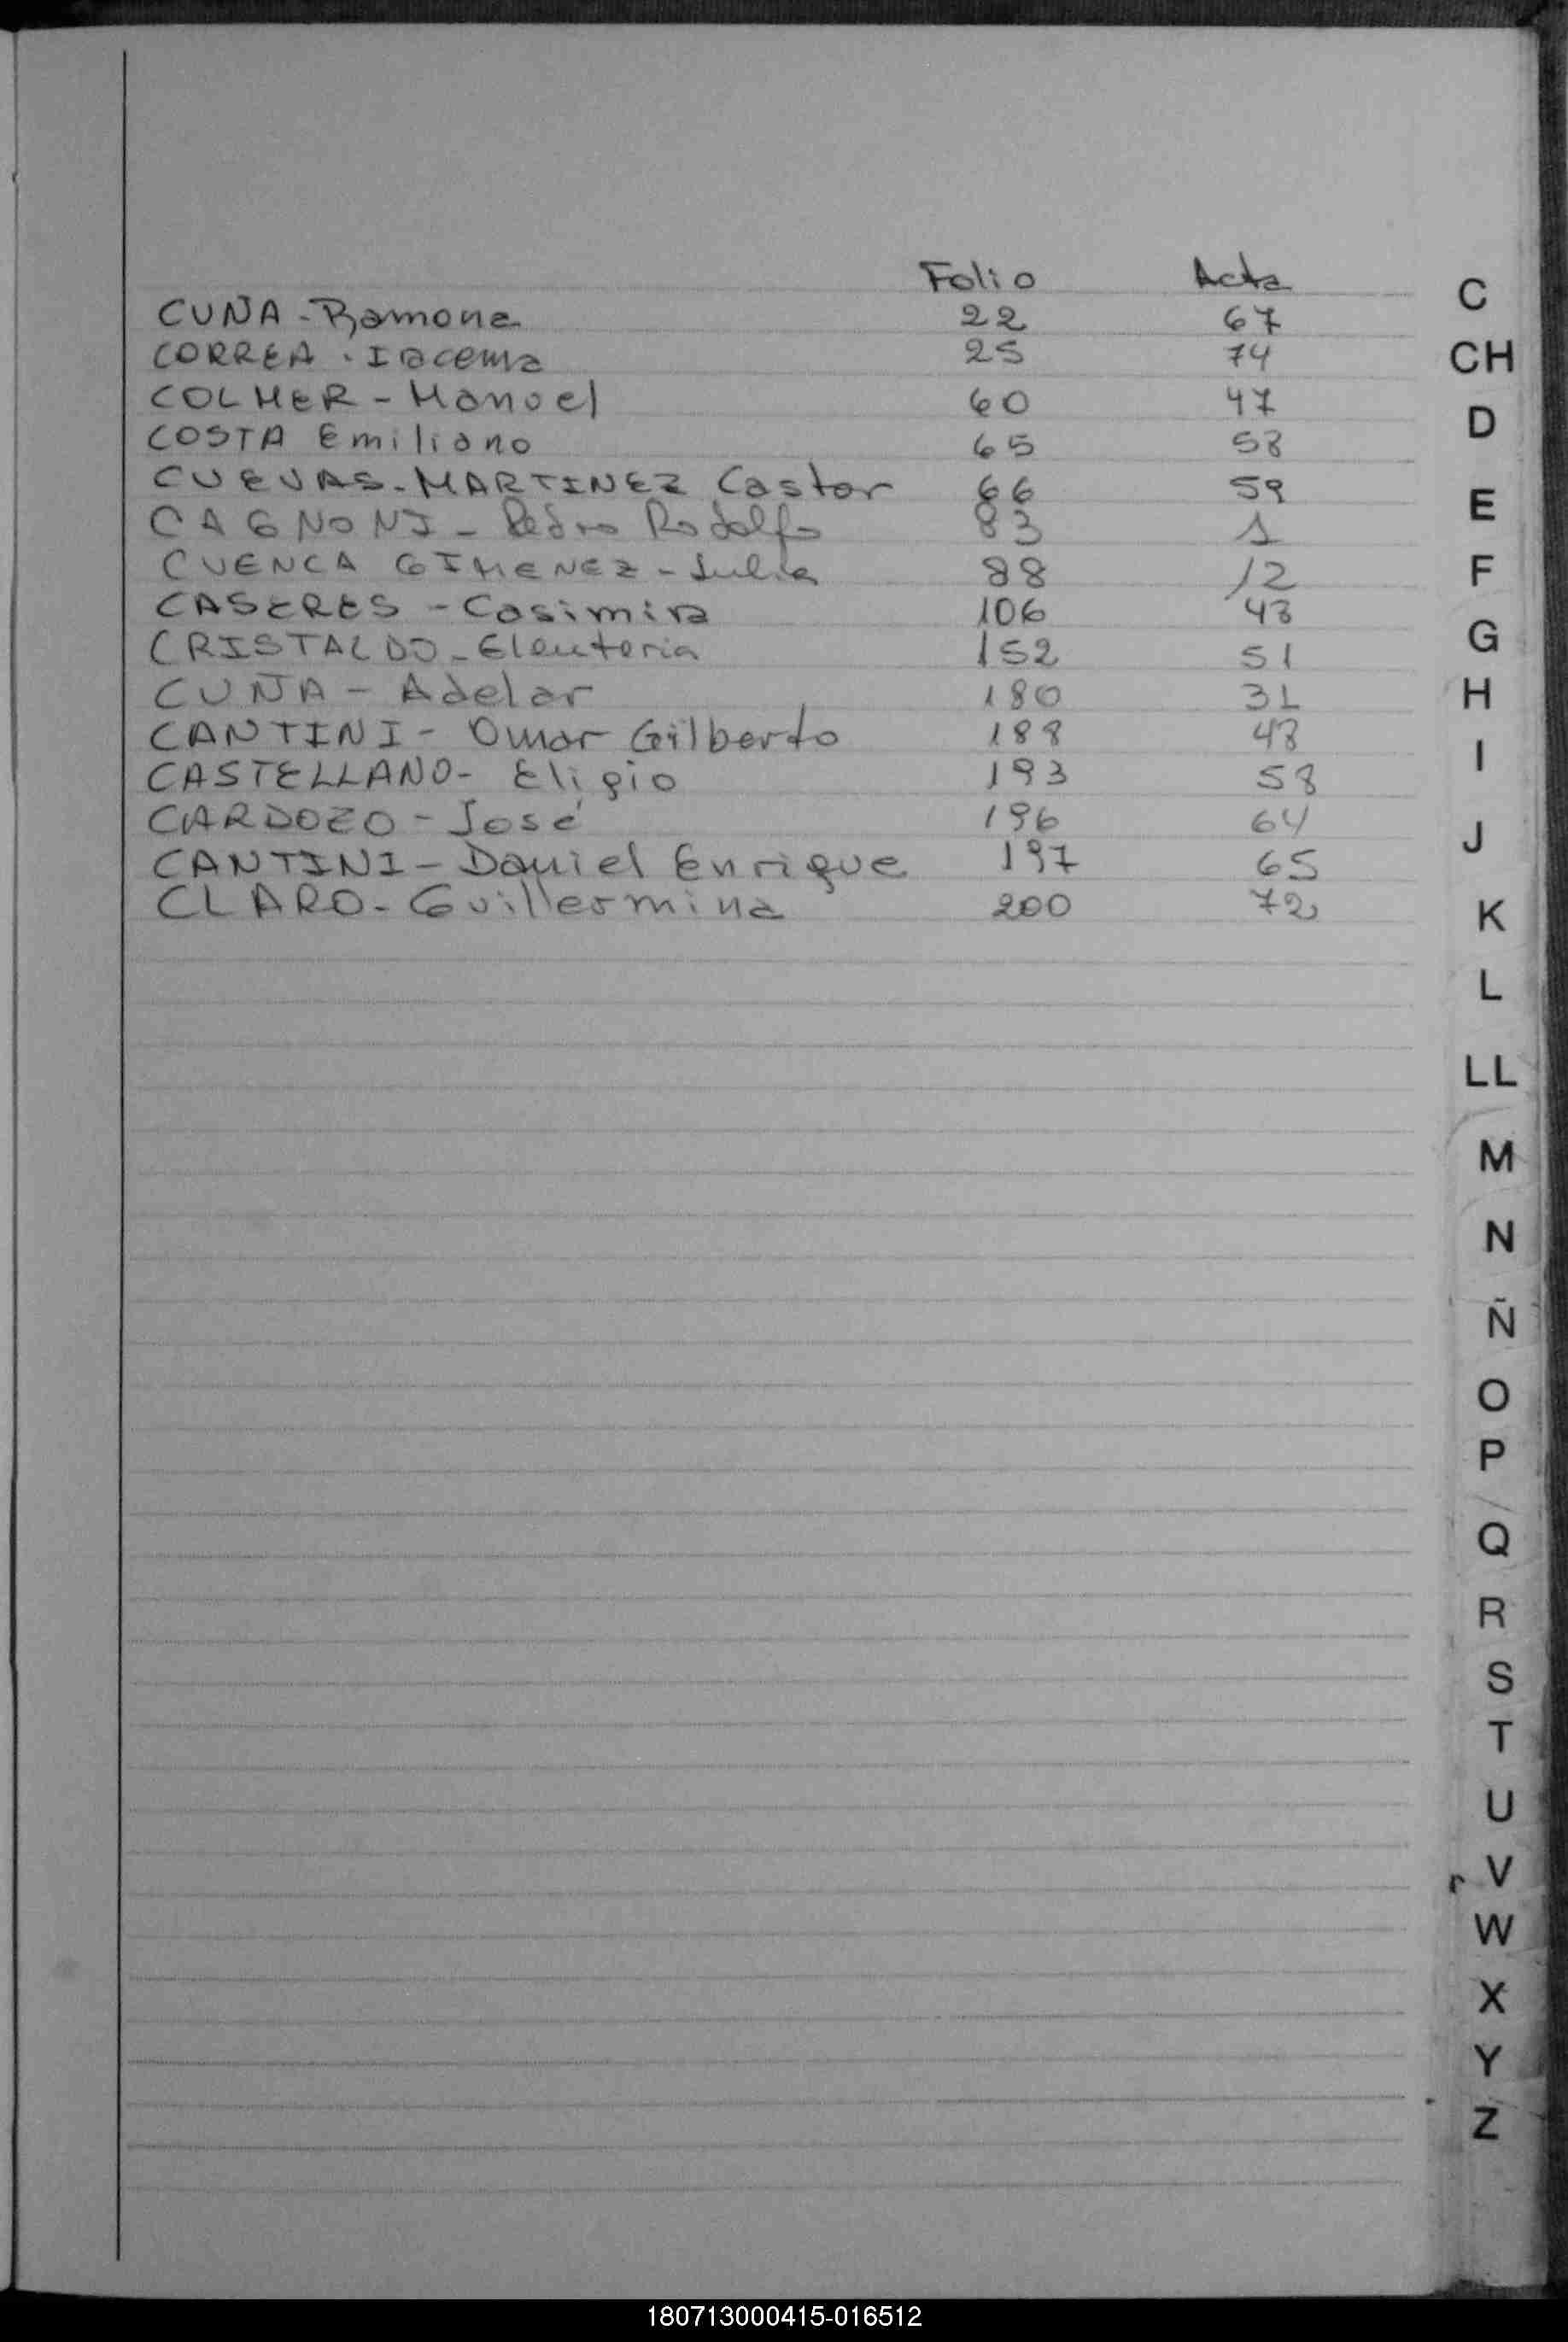 Folio Acta
CUÑA - Ramona 22 67
CORREA - Iracema 25 74
COLMER - Manoel 60 47
COSTA Emiliano 65 58
CUEVAS - MARTINEZ Castor 66 59
CAGNONI - Pedro Rodolfo 83 1
CUENCA GIMENEZ - Julia 88 12
CASERES - Casimira 106 43
CRISTALDO - Eleuteria 152 51
CUÑA - Adelar 180 31
CANTINI - Omar Gilberto 188 48
CASTELLANO - Eligio 193 58
CARDOZO - José 196 64
CANTINI - Daniel Enrique 197 65
CLARO - Guillermina 200 72
C
CH
D
E
F
G
H
I
J
K
L
LL
M
N
Ñ
O
P
Q
R
S
T
U
V
W
X
Y
Z
180713000415-016512